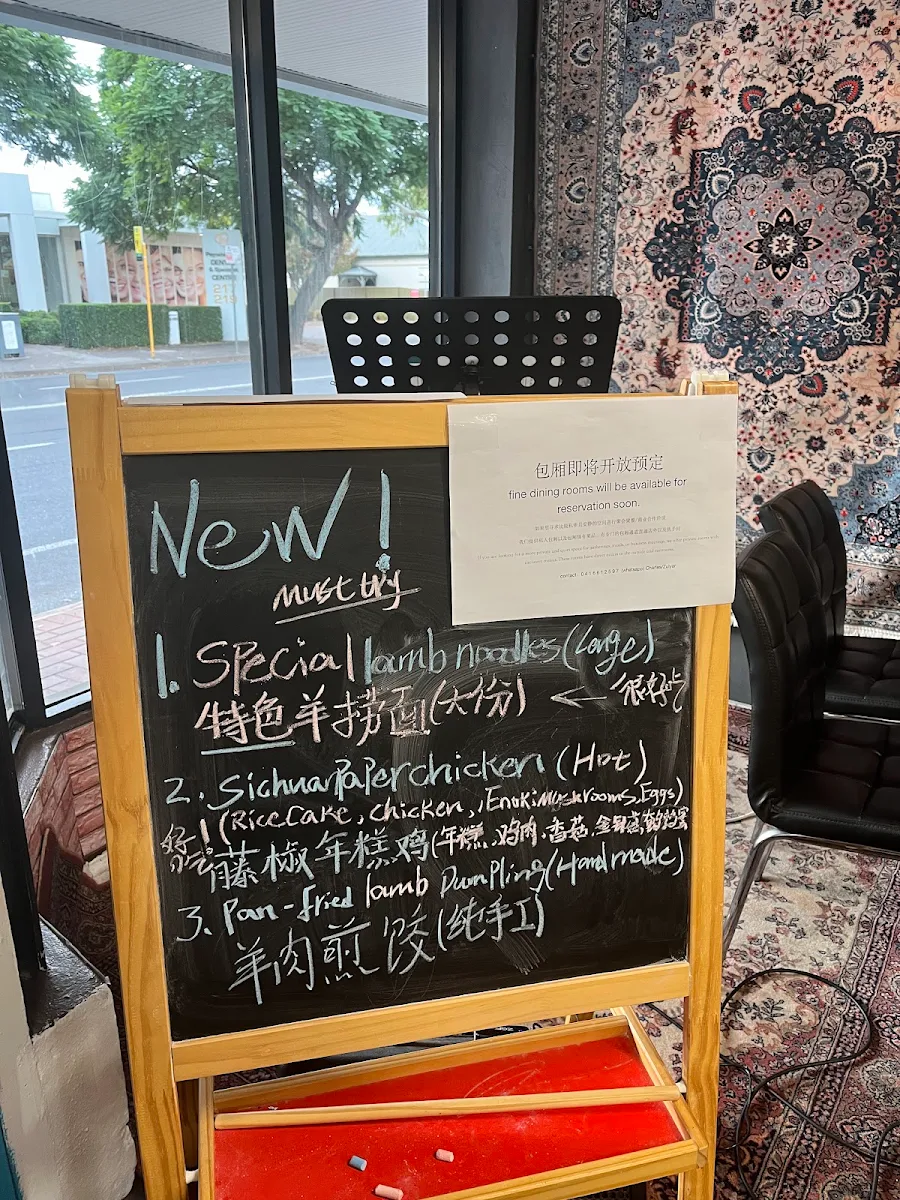 DEN
& Speci
CENT
217
219
包厢即将开放预定
fine dining rooms will be available for
reservation soon.
New!
must try
1. Special lamb noodles (Large)
特色羊捞面(大份) ← 很好吃
2. Sichuan Paper chicken (Hot)
(Rice Cake, Chicken, Enoki Mushrooms, Eggs)
好吃!
藤椒年糕鸡(年糕.鸡肉.香菇.金针菇
3. Pan-fried lamb Dumpling (Handmade)
羊肉煎饺(纯手工)